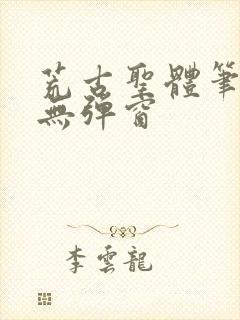 荒古聖體筆
無彈窗
李雲龍